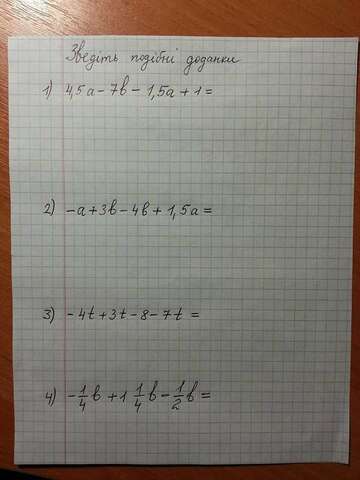 Зведіть подібні доданки
1) 4,5a - 7b - 1,5a + 1 =
2) -a + 3b - 4b + 1,5a =
3) - 4t + 3t - 8 - 7t =
4) - 1/4 b + 1 1/4 b - 1/2 b =